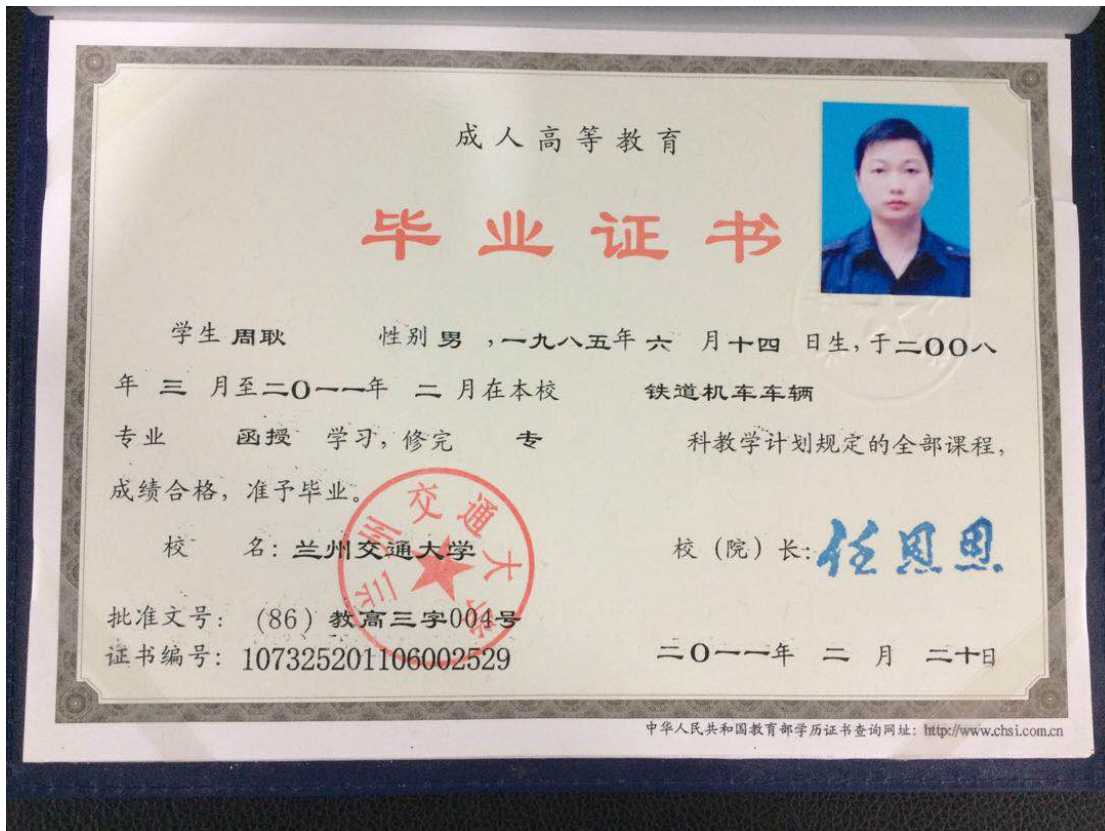 成人高等教育
毕业证书
学生 周耿 性别 男 ,一九八五年 六 月十四 日生,于二OO八
年 三 月至二O一一年 二 月在本校 铁道机车车辆
专业 函授 学习,修完 专 科教学计划规定的全部课程,
成绩合格,准予毕业。
兰州交通大学
校 名:兰州交通大学 校(院)长:任恩恩
批准文号: (86) 教高三字004号
证书编号: 107325201106002529 二O一一年 二 月 二十日
中华人民共和国教育部学历证书查询网址: http://www.chsi.com.cn